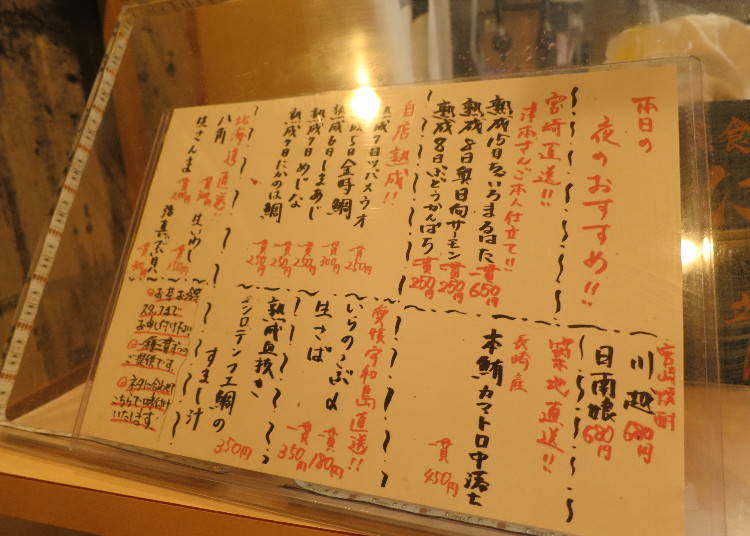 本日の
夜のおすすめ!!
宮崎直送!!
津本さんご本人仕立て!!
熟成15日ちいろまるはた 一貫650円
熟成8日奥日向サーモン 一貫250円
熟成8日ぶどうかんぱち 一貫250円
自店熟成!!
熟成7日ツバメウオ 一貫250円
熟成5日金時鯛 一貫300円
熟成6日しまあじ 一貫250円
熟成7日めじな 一貫250円
熟成7日たかのは鯛 一貫250円
北海道直送!!
八角
生さんま
生いわし 一貫150円
宮崎焼酎
川越 680円
日南娘 680円
築地直送!!
長崎産
本鮪カマトロ中落ち 一貫450円
愛媛宇和島直送!!
いらのっぶα 一貫180円
生さば 一貫350円
熟成皿抜き
メンロテンフエ鯛の
すまし汁 350円
スタッフまで
お申し付け下さい
一種一貫ずつの
ご提供です。
ネタに合わせて
こちらで味付け
いたします。